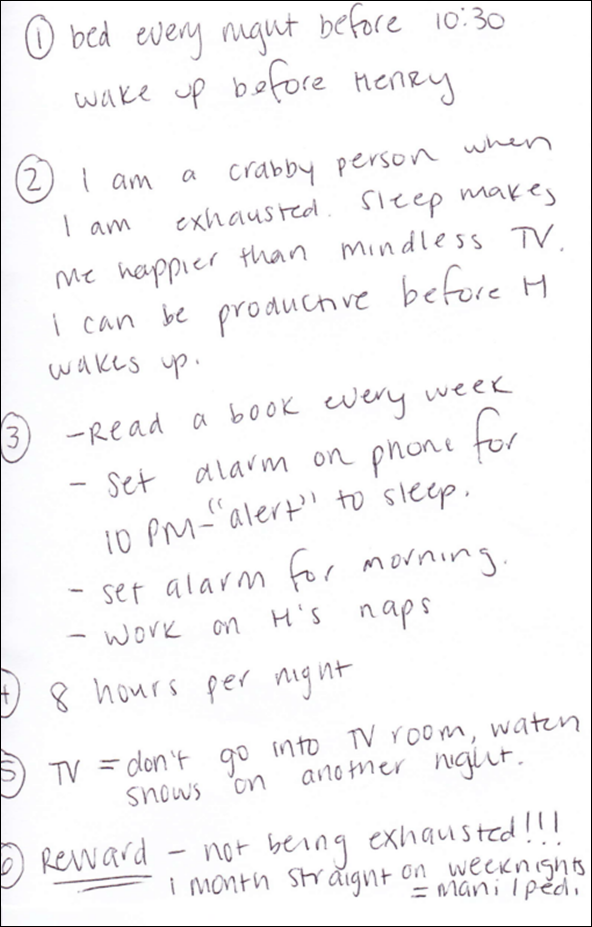 ① bed every night before 10:30
wake up before Henry
② I am a crabby person when
I am exhausted. Sleep makes
me happier than mindless TV.
i can be productive before H
wakes up.
③ - Read a book every week
- Set alarm on phone for
10 PM - "alert" to sleep.
- set alarm for morning.
- work on H's naps
④ 8 hours per night
⑤ TV = don't go into TV room, watch
shows on another night.
⑥ Reward - not being exhausted!!!
1 month straight on weeknights
= mani/pedi.